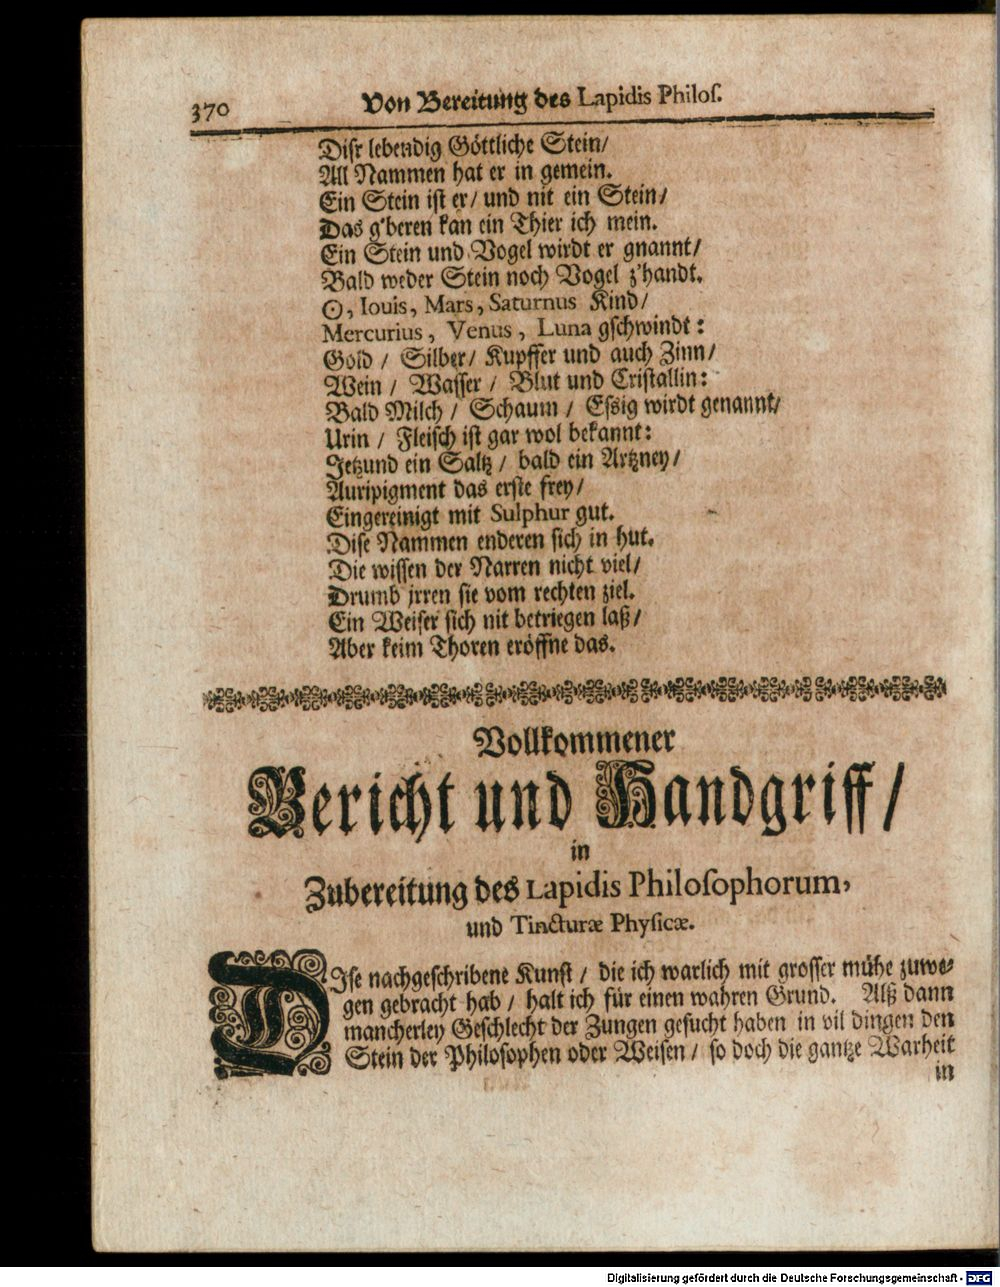 370 Von Bereitung des Lapidis Philoſ.
Diſr lebendig Göttliche Stein/
All Nammen hat er in gemein.
Ein Stein iſt er/ und nit ein Stein/
Das g'beren kan ein Thier ich mein.
Ein Stein und Vogel wirdt er gnannt/
Bald weder Stein noch Vogel z'handt.
☉, Iouis, Mars, Saturnus Kind/
Mercurius, Venus, Luna gſchwindt:
Gold / Silber/ Kupffer und auch Zinn/
Wein / Waſſer / Blut und Criſtallin:
Bald Milch / Schaum / Eſsig wirdt genannt/
Urin / Fleiſch iſt gar wol bekannt:
Jetzund ein Saltz / bald ein Artzney/
Auripigment das erſte frey/
Eingereinigt mit Sulphur gut.
Diſe Nammen enderen ſich in hut.
Die wiſſen der Narren nicht viel/
Drumb jrren ſie vom rechten ziel.
Ein Weiſer ſich nit betriegen laß/
Aber keim Thoren eröffne das.
Vollkommener
Bericht und Handgriff/
in
Zubereitung des Lapidis Philoſophorum,
und Tincturæ Phyſicæ.
DIſe nachgeſchribene Kunſt / die ich warlich mit groſſer mühe zuwe-
gen gebracht hab / halt ich für einen wahren Grund. Alß dann
mancherley Geſchlecht der Zungen geſucht haben in vil dingen den
Stein der Philoſophen oder Weiſen / ſo doch die gantze Warheit
in
Digitalisierung gefördert durch die Deutsche Forschungsgemeinschaft - DFG